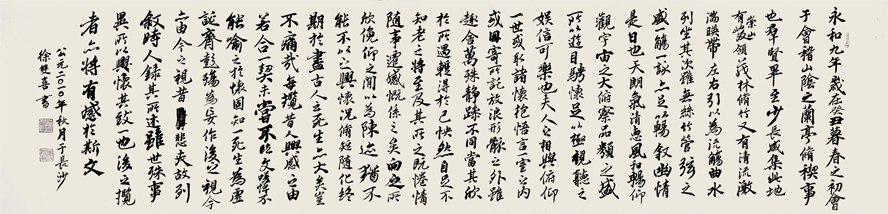 永和九年歲在癸丑暮春之初會
于會稽山陰之蘭亭脩稧事
也群賢畢至少長咸集此地
有崇山峻領茂林脩竹又有清流激
湍暎帶左右引以為流觴曲水
列坐其次雖無絲竹管弦之
盛一觴一詠亦足以暢敘幽情
是日也天朗氣清惠風和暢仰
觀宇宙之大俯察品類之盛
所以遊目騁懷足以極視聽之
娛信可樂也夫人之相與俯仰
一世或取諸懷抱悟言一室之內
或因寄所託放浪形骸之外雖
趣舍萬殊靜躁不同當其欣
於所遇暫得於己怏然自足不
知老之將至及其所之既惓情
隨事遷感慨係之矣向之所
欣俛仰之間以為陳迹猶不
能不以之興懷況脩短隨化終
期於盡古人云死生亦大矣豈
不痛哉每攬昔人興感之由
若合一契未嘗不臨文嗟悼不
能喻之於懷固知一死生為虛
誕齊彭殤為妄作後之視今
亦由今之視昔悲夫故列
敘時人錄其所述雖世殊事
異所以興懷其致一也後之攬
者亦將有感於斯文
公元二〇〇年秋月于長沙
徐雙喜書